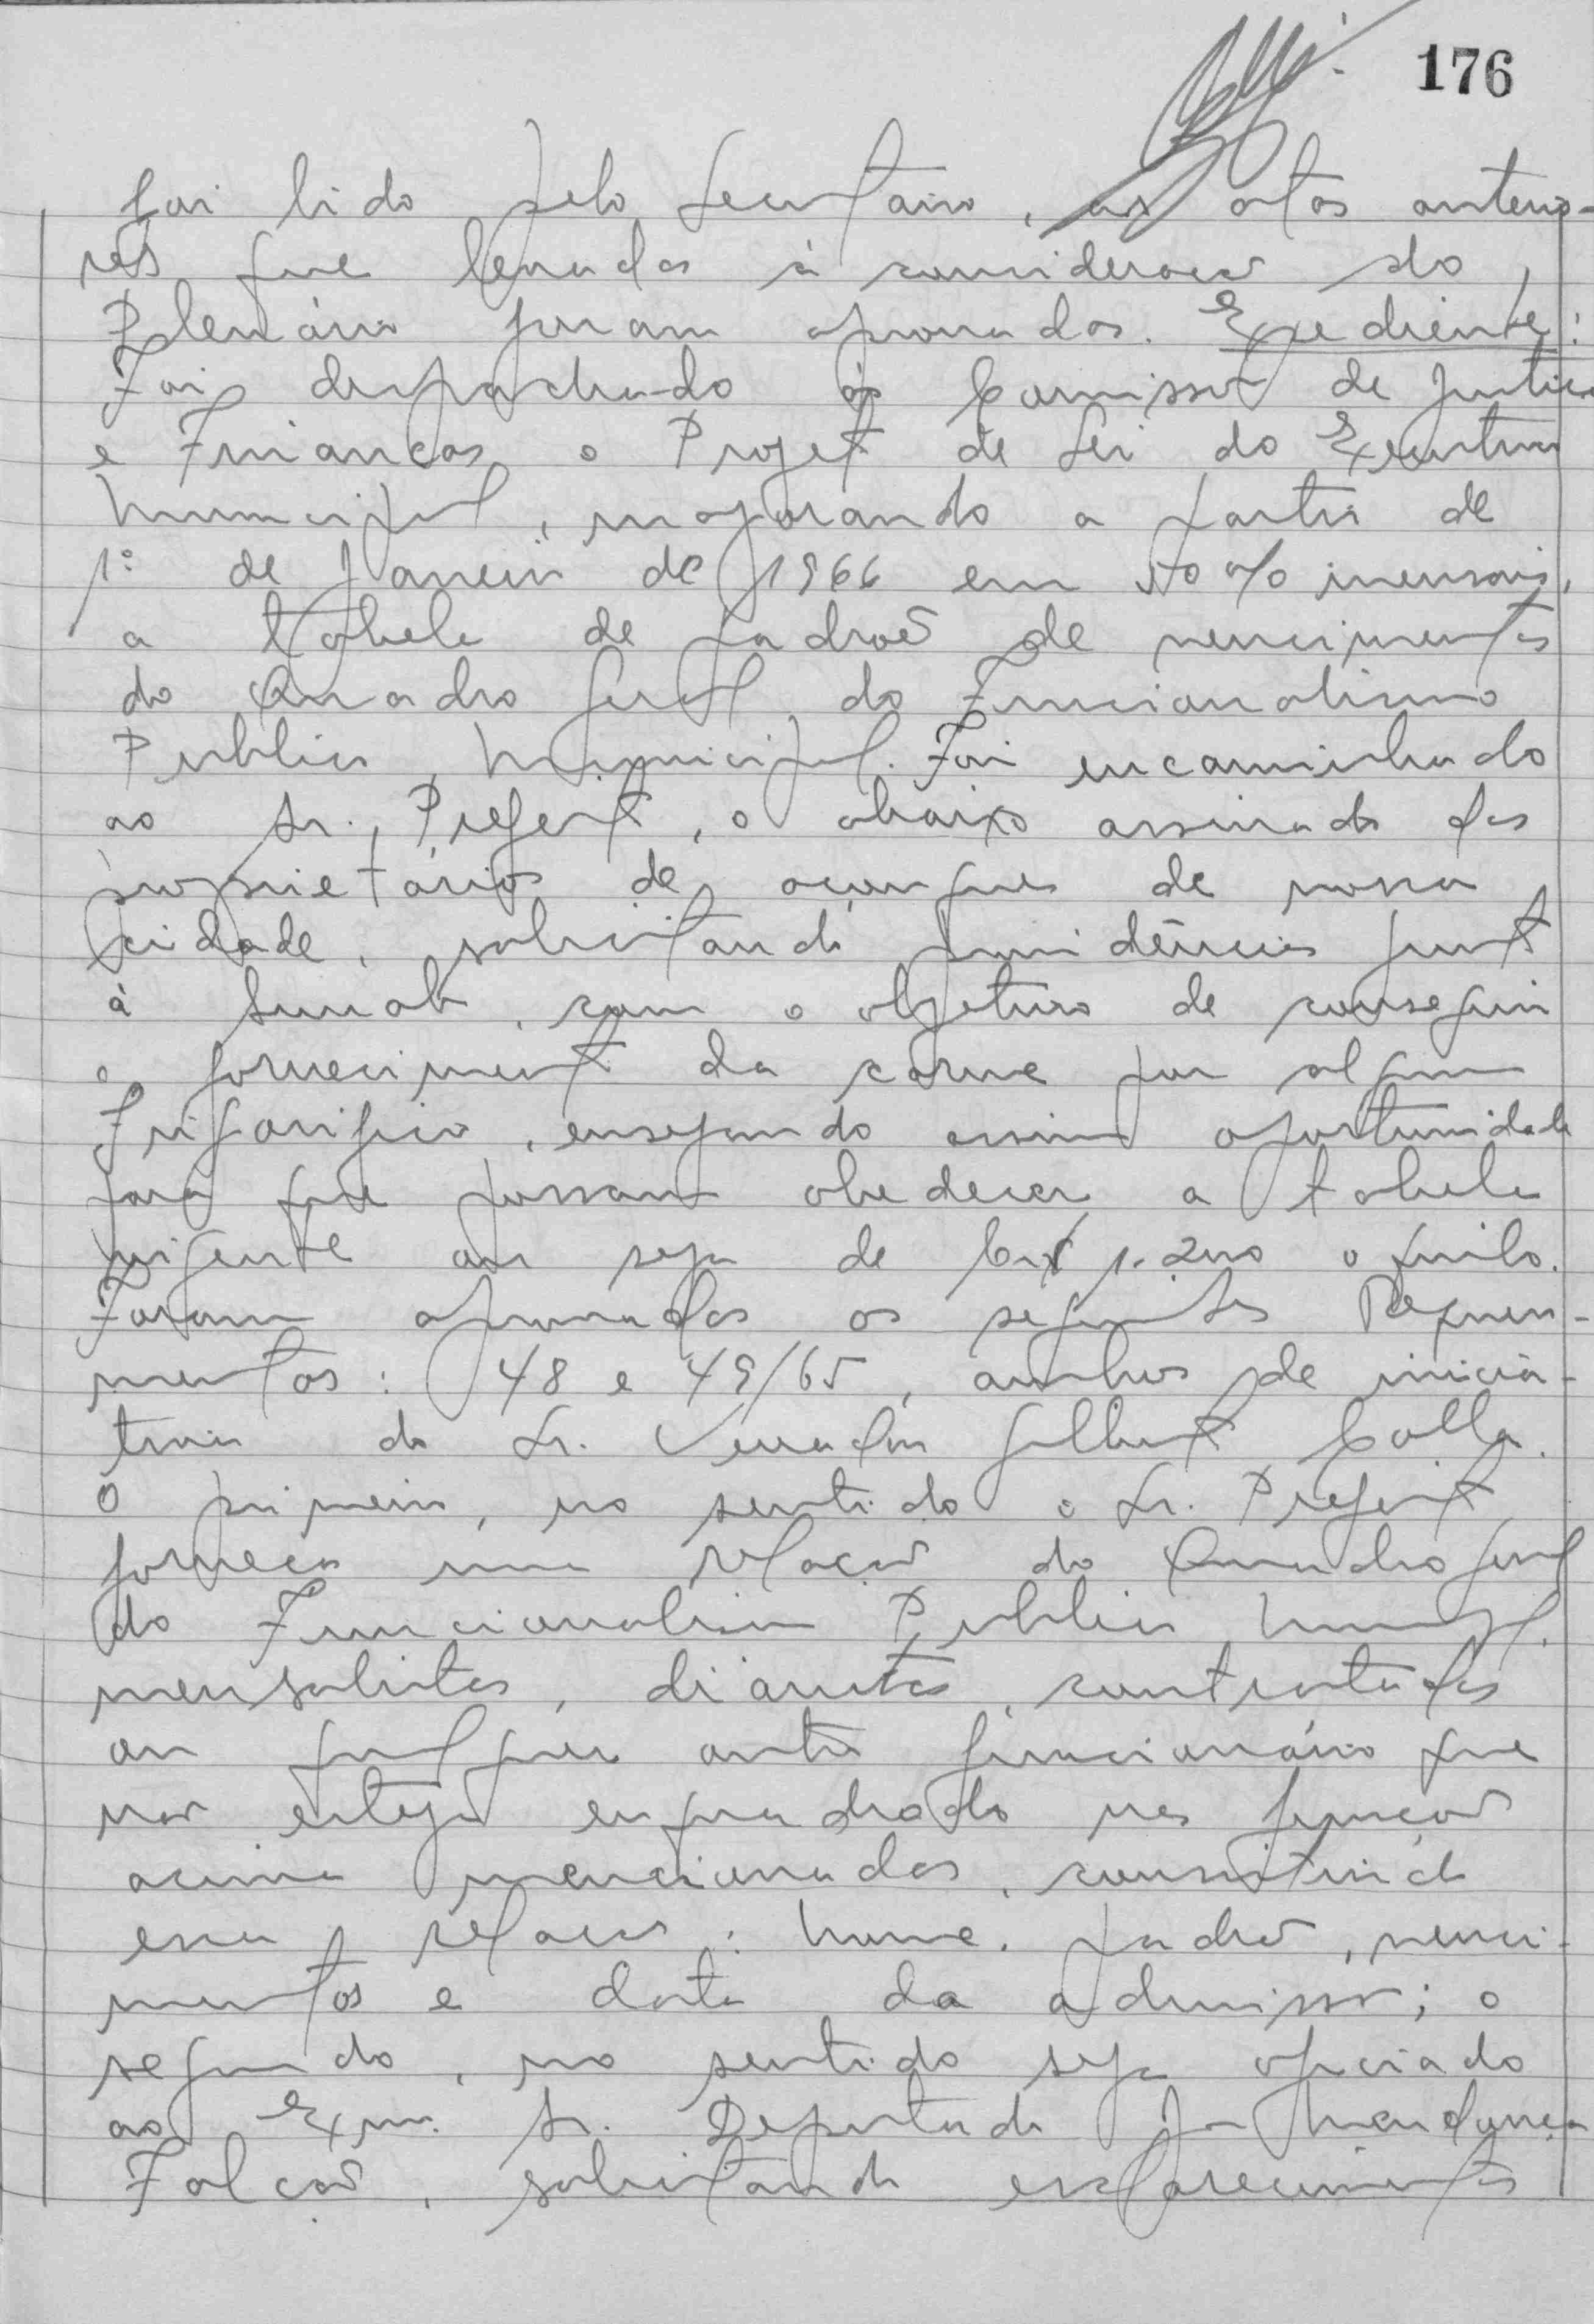 176
foi lido pelo Secretário, as atas anterio-
res que levadas à consideração do
Plenário foram aprovadas. Expediente:
Foi despachado às Comissão de Justiça
e Finanças o Projeto de Lei do Executivo
Municipal, majorando a partir de
1º de Janeiro de 1966 em % mensais,
a tabela de padrão de vencimentos
do Quadro Geral do Funcionalismo
Publico Municipal. Foi encaminhado
ao Sr. Prefeito, o abaixo assinado dos
proprietários de açougues de nossa
cidade, solicitando providências junto
à Sunab, com o objetivo de conseguir
o fornecimento da carne por algum
Frigorifico, ensejando assim oportunidade
para que possam obedecer a tabela
vigente ou seja de Cr$ 1.200 o quilo.
Foram aprovados os seguintes Requeri-
mentos: 48 e 49/65, ambos de inicia-
tiva do Sr. Vereador Gilberto Colla.
O primeiro, no sentido o Sr. Prefeito
forneça uma relação do Quadro Geral
do Funcionalismo Publico Municipal,
mensalistas, diaristas, contratados
ou qualquer outro funcionário que
não esteja enquadrado nas função
acima mencionadas, constituido
essa relação: Nome, padrão, venci-
mentos e data da admissão; o
segundo, no sentido seja oficiado
ao Exmo. Sr. Deputado Mendonça
Falcão, solicitando esclarecimentos